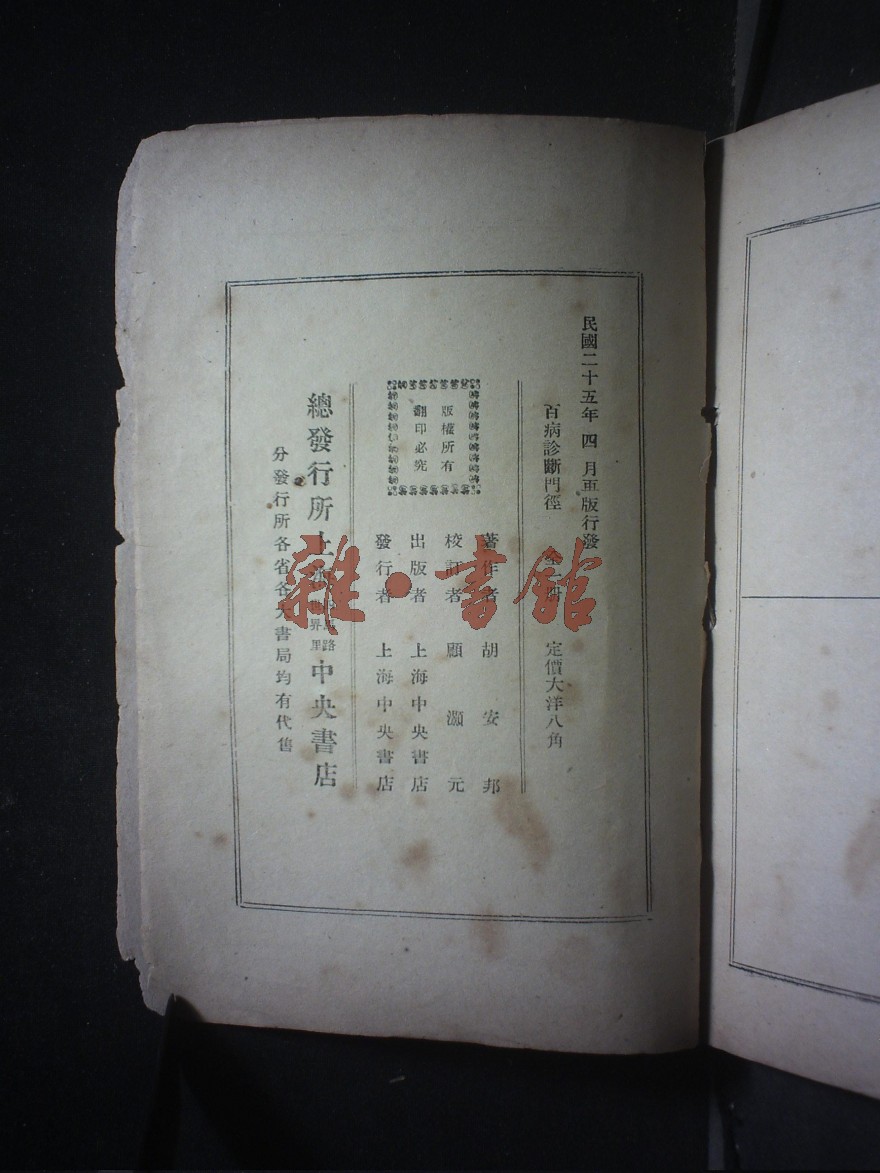 民國二十五年四月再版行發
百病診斷門徑 全 冊 定價大洋八角
著作者 胡安邦
校訂者 顧灝元
出版者 上海中央書店
發行者 上海中央書店
版權所有
翻印必究
總發行所上海 馬路
世界里
中央書店
分發行所各省各大書局均有代售
雜·書館